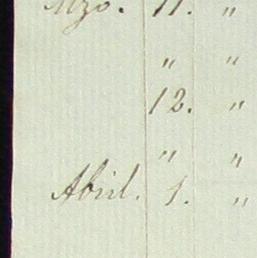 Mzo. 11. "
" "
12. "
" "
Abril. 1. "